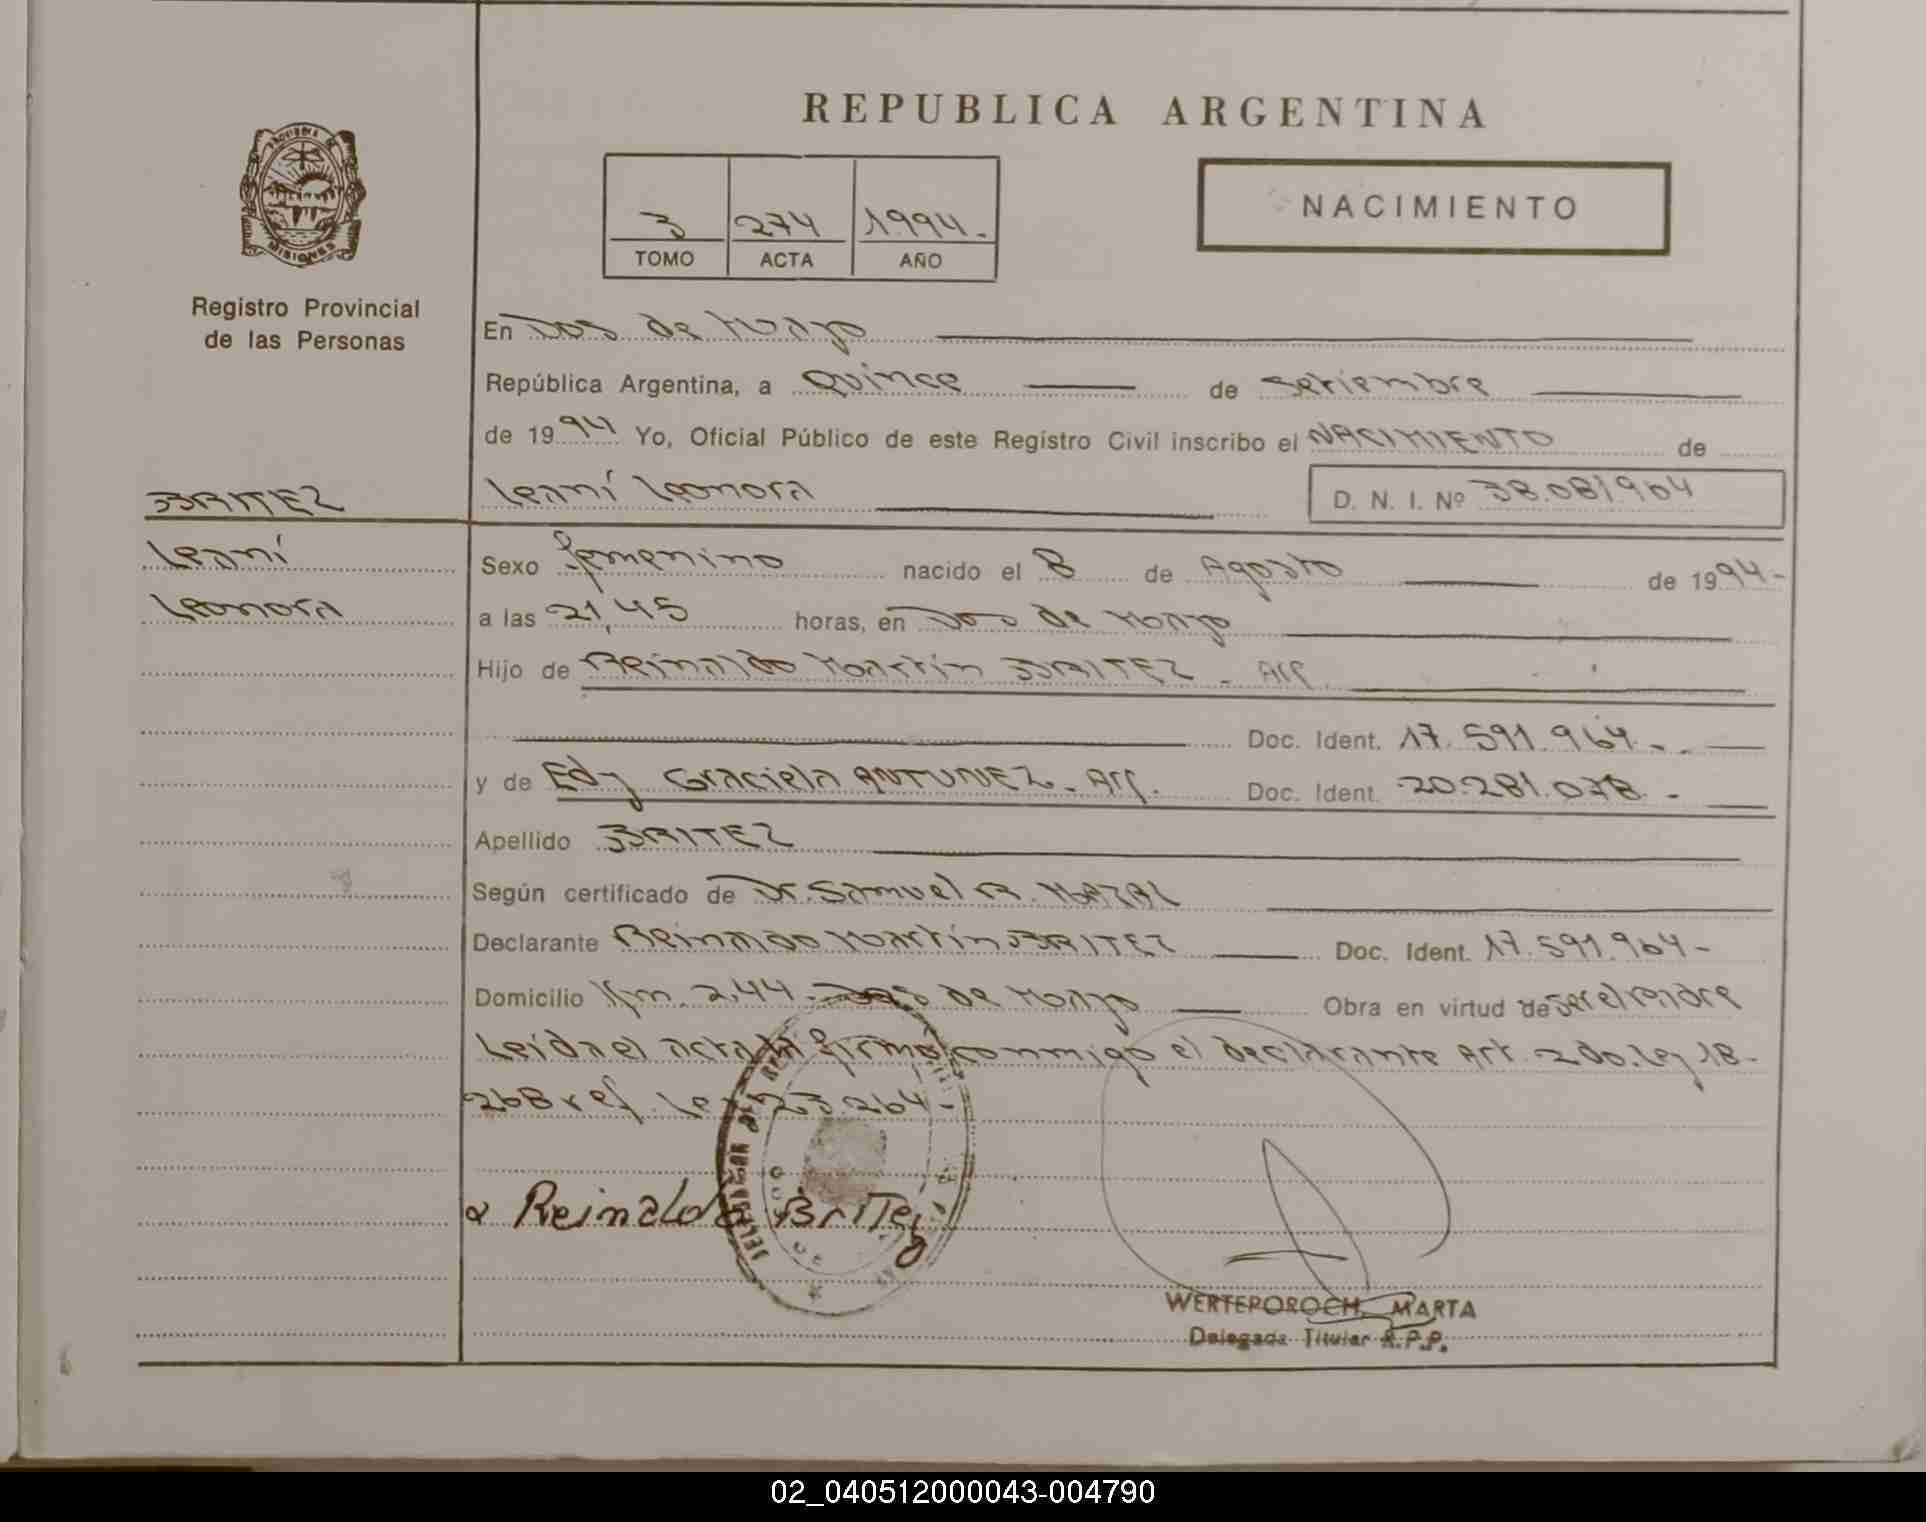 PROVINCIA DE
MISIONES
Registro Provincial
de las Personas
REPUBLICA ARGENTINA
3 274 1994.-
TOMO ACTA AÑO
NACIMIENTO
En Dos de Mayo
República Argentina, a Quince de Setiembre
de 1994 Yo, Oficial Público de este Registro Civil inscribo el NACIMIENTO de
BRITEZ Leaní Leonora D. N. I. Nº 38.081904
Leaní Sexo femenino nacido el 8 de Agosto de 1994-
Leonora a las 21,45 horas, en Dos de Mayo
Hijo de Reinaldo Martín BRITEZ - Arg.
Doc. Ident. 17.591.964.-
y de Edy Graciela ANTUNEZ - Arg. Doc. Ident. 20.281.078.-
Apellido BRITEZ
Según certificado de Dr. Samuel R.
Declarante Reinaldo Martín BRITEZ Doc. Ident. 17.591.964-
Domicilio Km. 244 - Dos de Mayo Obra en virtud de ser el padre
Leida el acta la firma conmigo el declarante Art. 2do. Ley 18-
268 ref. Ley 23.264-
Reinaldo Britez
WERTEPOROCH, MARTA
Delegada Titular R.P.P.
02_040512000043-004790